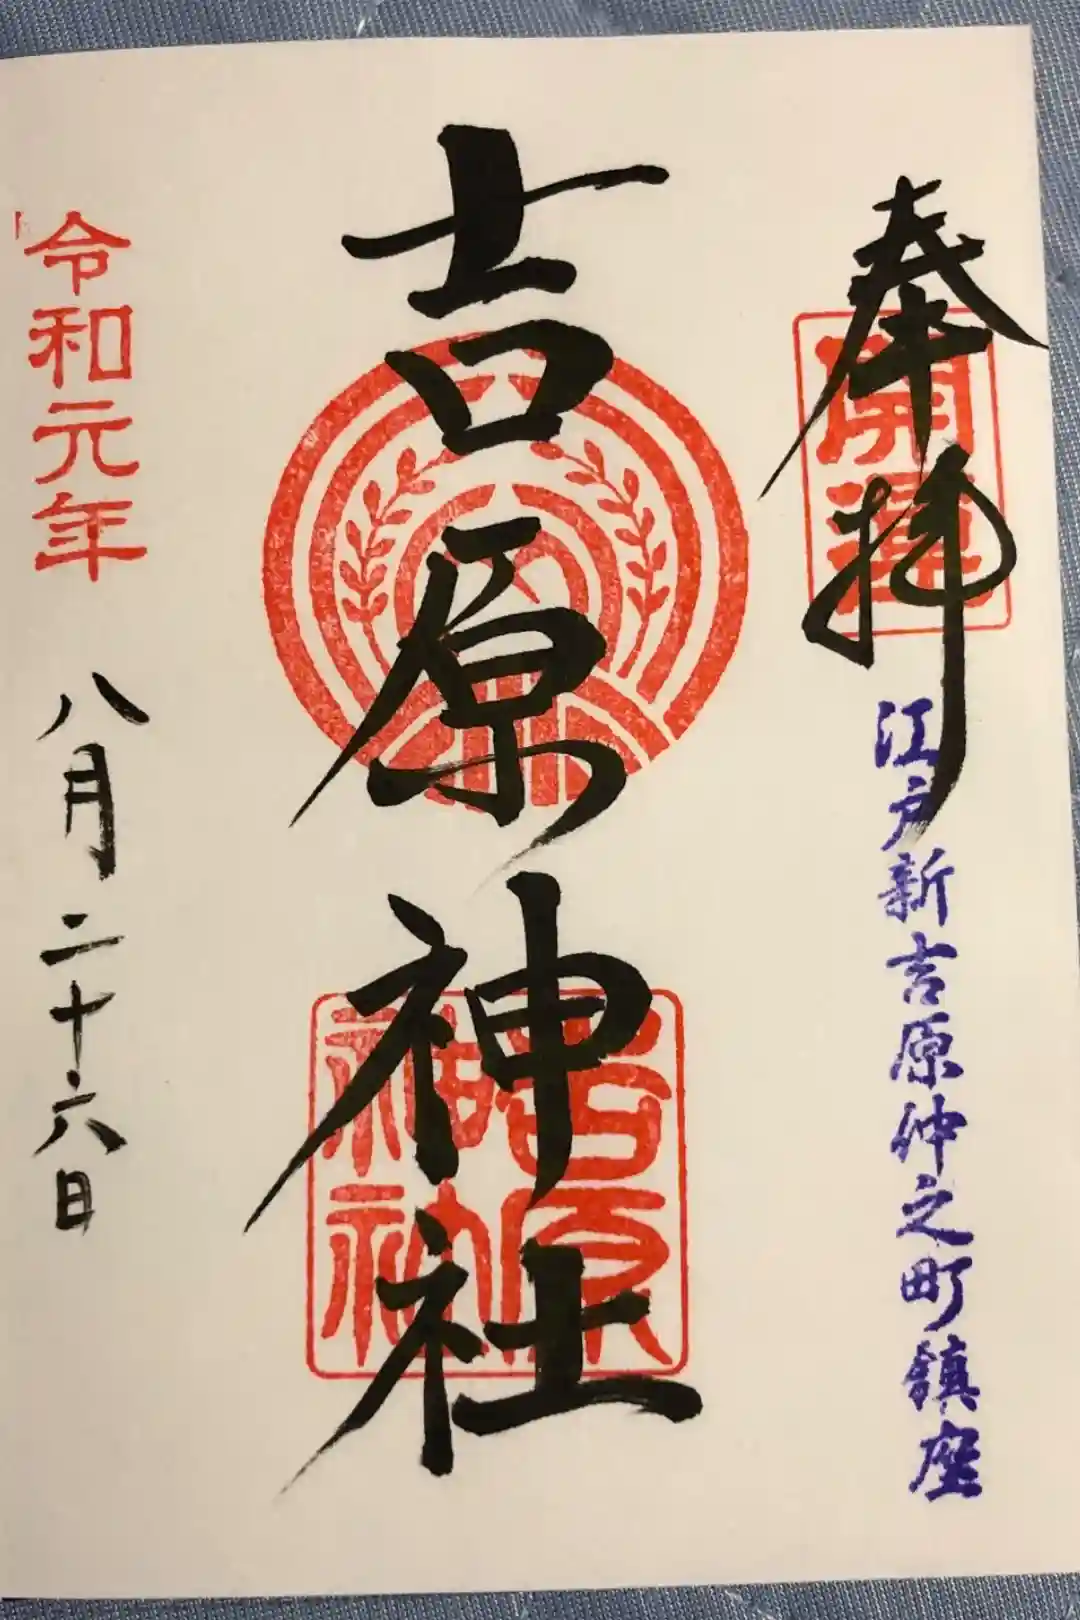 奉拝
開運
江戸新吉原仲之町鎮座
吉原神社
吉原神社
令和元年
八月二十六日